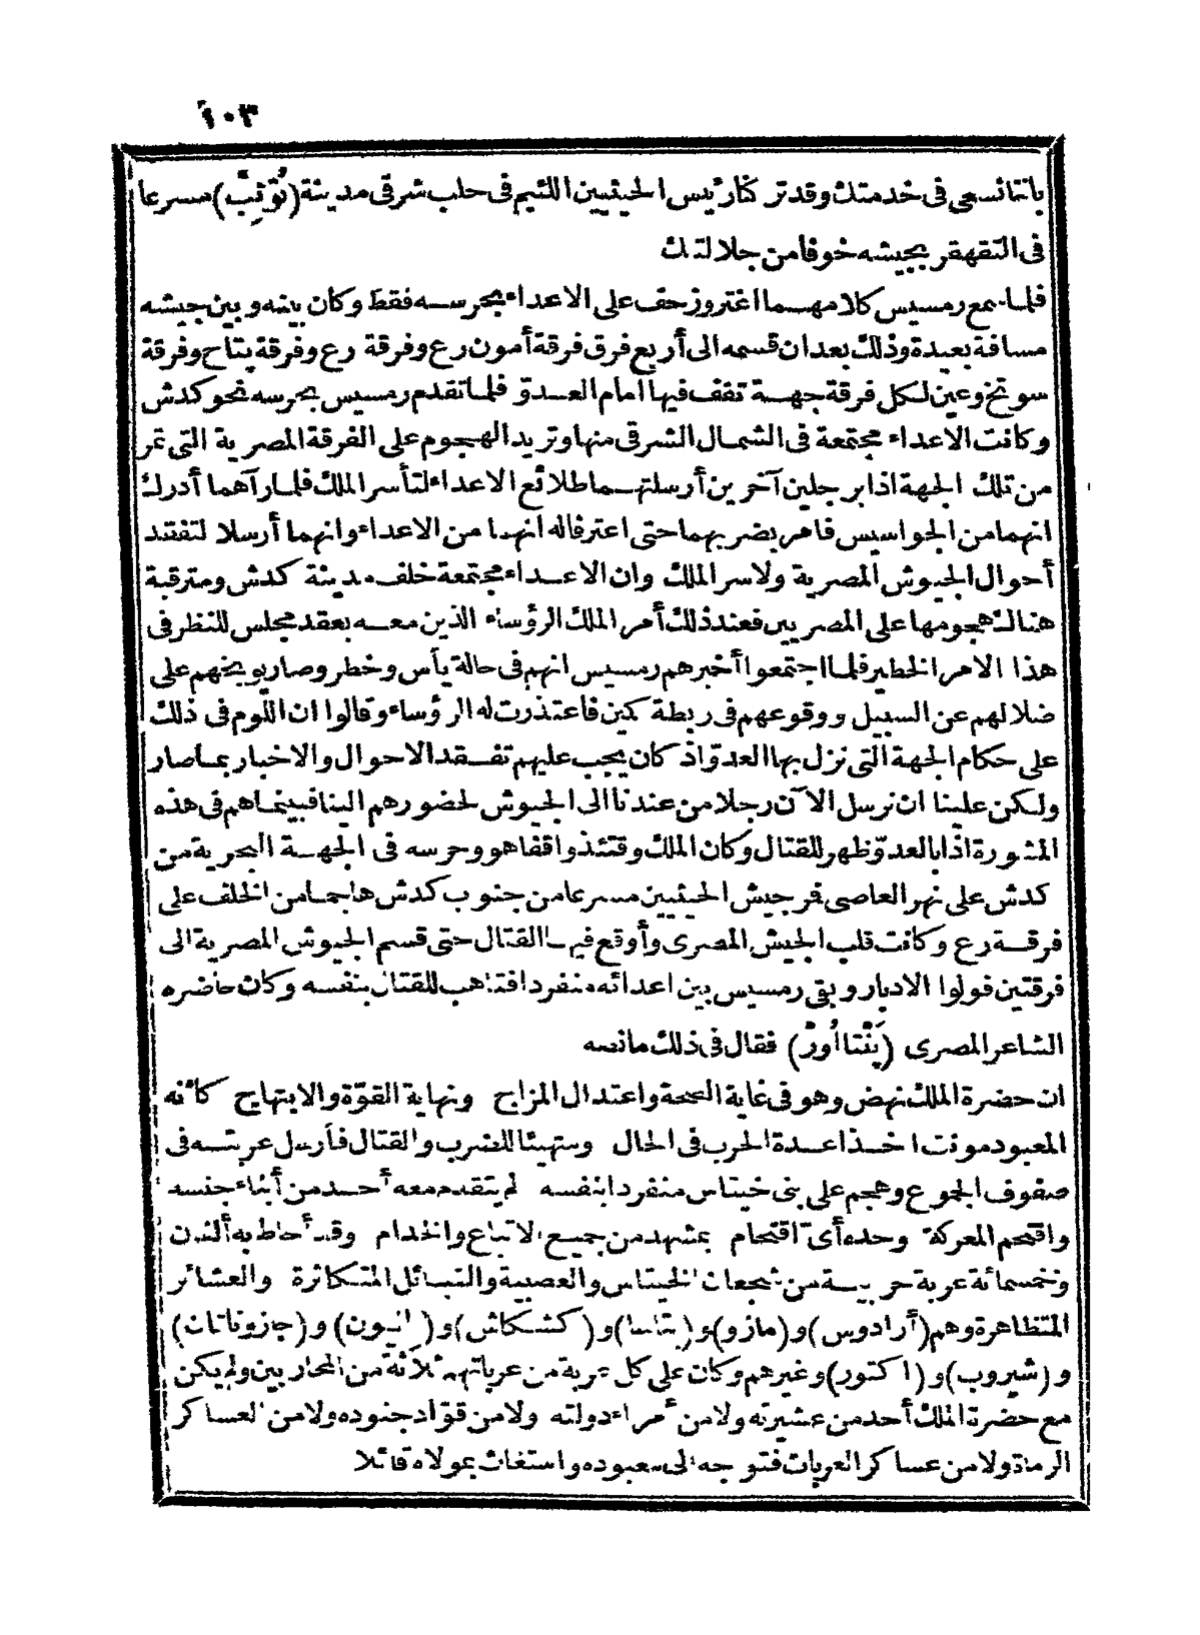 ١٠٣
باننا نسعى فى خدمتك وقد تركنا رئيس الحيثيين اللئيم فى حلب شرقى مدينة (تُوْنِبْ) مسرعا
فى التقهقر بجيشه خوفا من جلالتك
فلما سمع رمسيس كلامهما اغتر وزحف على الاعداء بحرسه فقط وكان بينه وبين جيشه
مسافة بعيدة وذلك بعد ان قسمه الى أربع فرق فرقة أمون رع وفرقة رع وفرقة پتاح وفرقة
سوتخ وعين لكل فرقة جهة تقف فيها امام العدوّ فلما تقدم رمسيس بحرسه نحو كدش
وكانت الاعداء مجتمعة فى الشمال الشرقى منها وتريد الهجوم على الفرقة المصرية التى تمر
من تلك الجهة اذا برجلين آخرين أرسلتهما طلائع الاعداء لتأسر الملك فلما رآهما أدرك
انهما من الجواسيس فامر بضربهما حتى اعترفا له انهما من الاعداء وانهما أرسلا لتفقد
أحوال الجيوش المصرية ولاسر الملك وان الاعداء مجتمعة خلف مدينة كدش ومترقبة
هناك هجومها على المصريين فعند ذلك أمر الملك الرؤساء الذين معه بعقد مجلس للنظر فى
هذا الامر الخطير فلما اجتمعوا أخبرهم رمسيس انهم فى حالة يأس وخطر وصار يوبخهم على
ضلالهم عن السبيل ووقوعهم فى ربطة كمين فاعتذرت له الرؤساء وقالوا ان اللوم فى ذلك
على حكام الجهة التى نزل بها العدوّ اذ كان يجب عليهم تفقد الاحوال والاخبار بما صار
ولكن علينا ان نرسل الآن رجلا من عندنا الى الجيوش لحضورهم الينا فبينما هم فى هذه
المشورة اذا بالعدوّ ظهر للقتال وكان الملك وقتئذ واقفا هو وحرسه فى الجهة البحرية من
كدش على نهر العاصى فمر جيش الحيثيين مسرعا من جنوب كدش هاجما من الخلف على
فرقة رع وكانت قلب الجيش المصرى وأوقع فيها القتال حتى قسم الجيوش المصرية الى
فرقتين فولوا الادبار وبقى رمسيس بين اعدائه منفردا فتأهب للقتال بنفسه وكان حاضره
الشاعر المصرى (پَنْتااُورْ) فقال فى ذلك ما نصه
ان حضرة الملك نهض وهو فى غاية الصحة واعتدال المزاج ونهاية القوّة والابتهاج كأنه
المعبود مونت اخذا عدة الحرب فى الحال ومتهيئا للضرب والقتال فأرسل عربته فى
صفوف الجموع وهجم على بنى خيتاس منفردا بنفسه لم يتقدم معه أحد من أبناء جنسه
واقتحم المعركة وحده أىّ اقتحام بمشهد من جميع الاتباع والخدام وقد أحاط به ألفان
وخمسمائة عربة حربية من شجعان الخيتاس والعصبية والقبائل المتكاثرة والعشائر
المتظاهرة وهم (أرادوس) و(مازو) و(بتاسا) و(كشكاش) و(انيون) و(جازوناتان)
و(شيروب) و(اكتور) وغيرهم وكان على كل عربة من عرباتهم ثلاثة من المحاربين ولم يكن
مع حضرة الملك أحد من عشيرته ولا من أمراء دولته ولا من قوّاد جنوده ولا من العساكر
الرماة ولا من عساكر العربات فتوجه الى معبوده واستغاث بمولاه قائلا